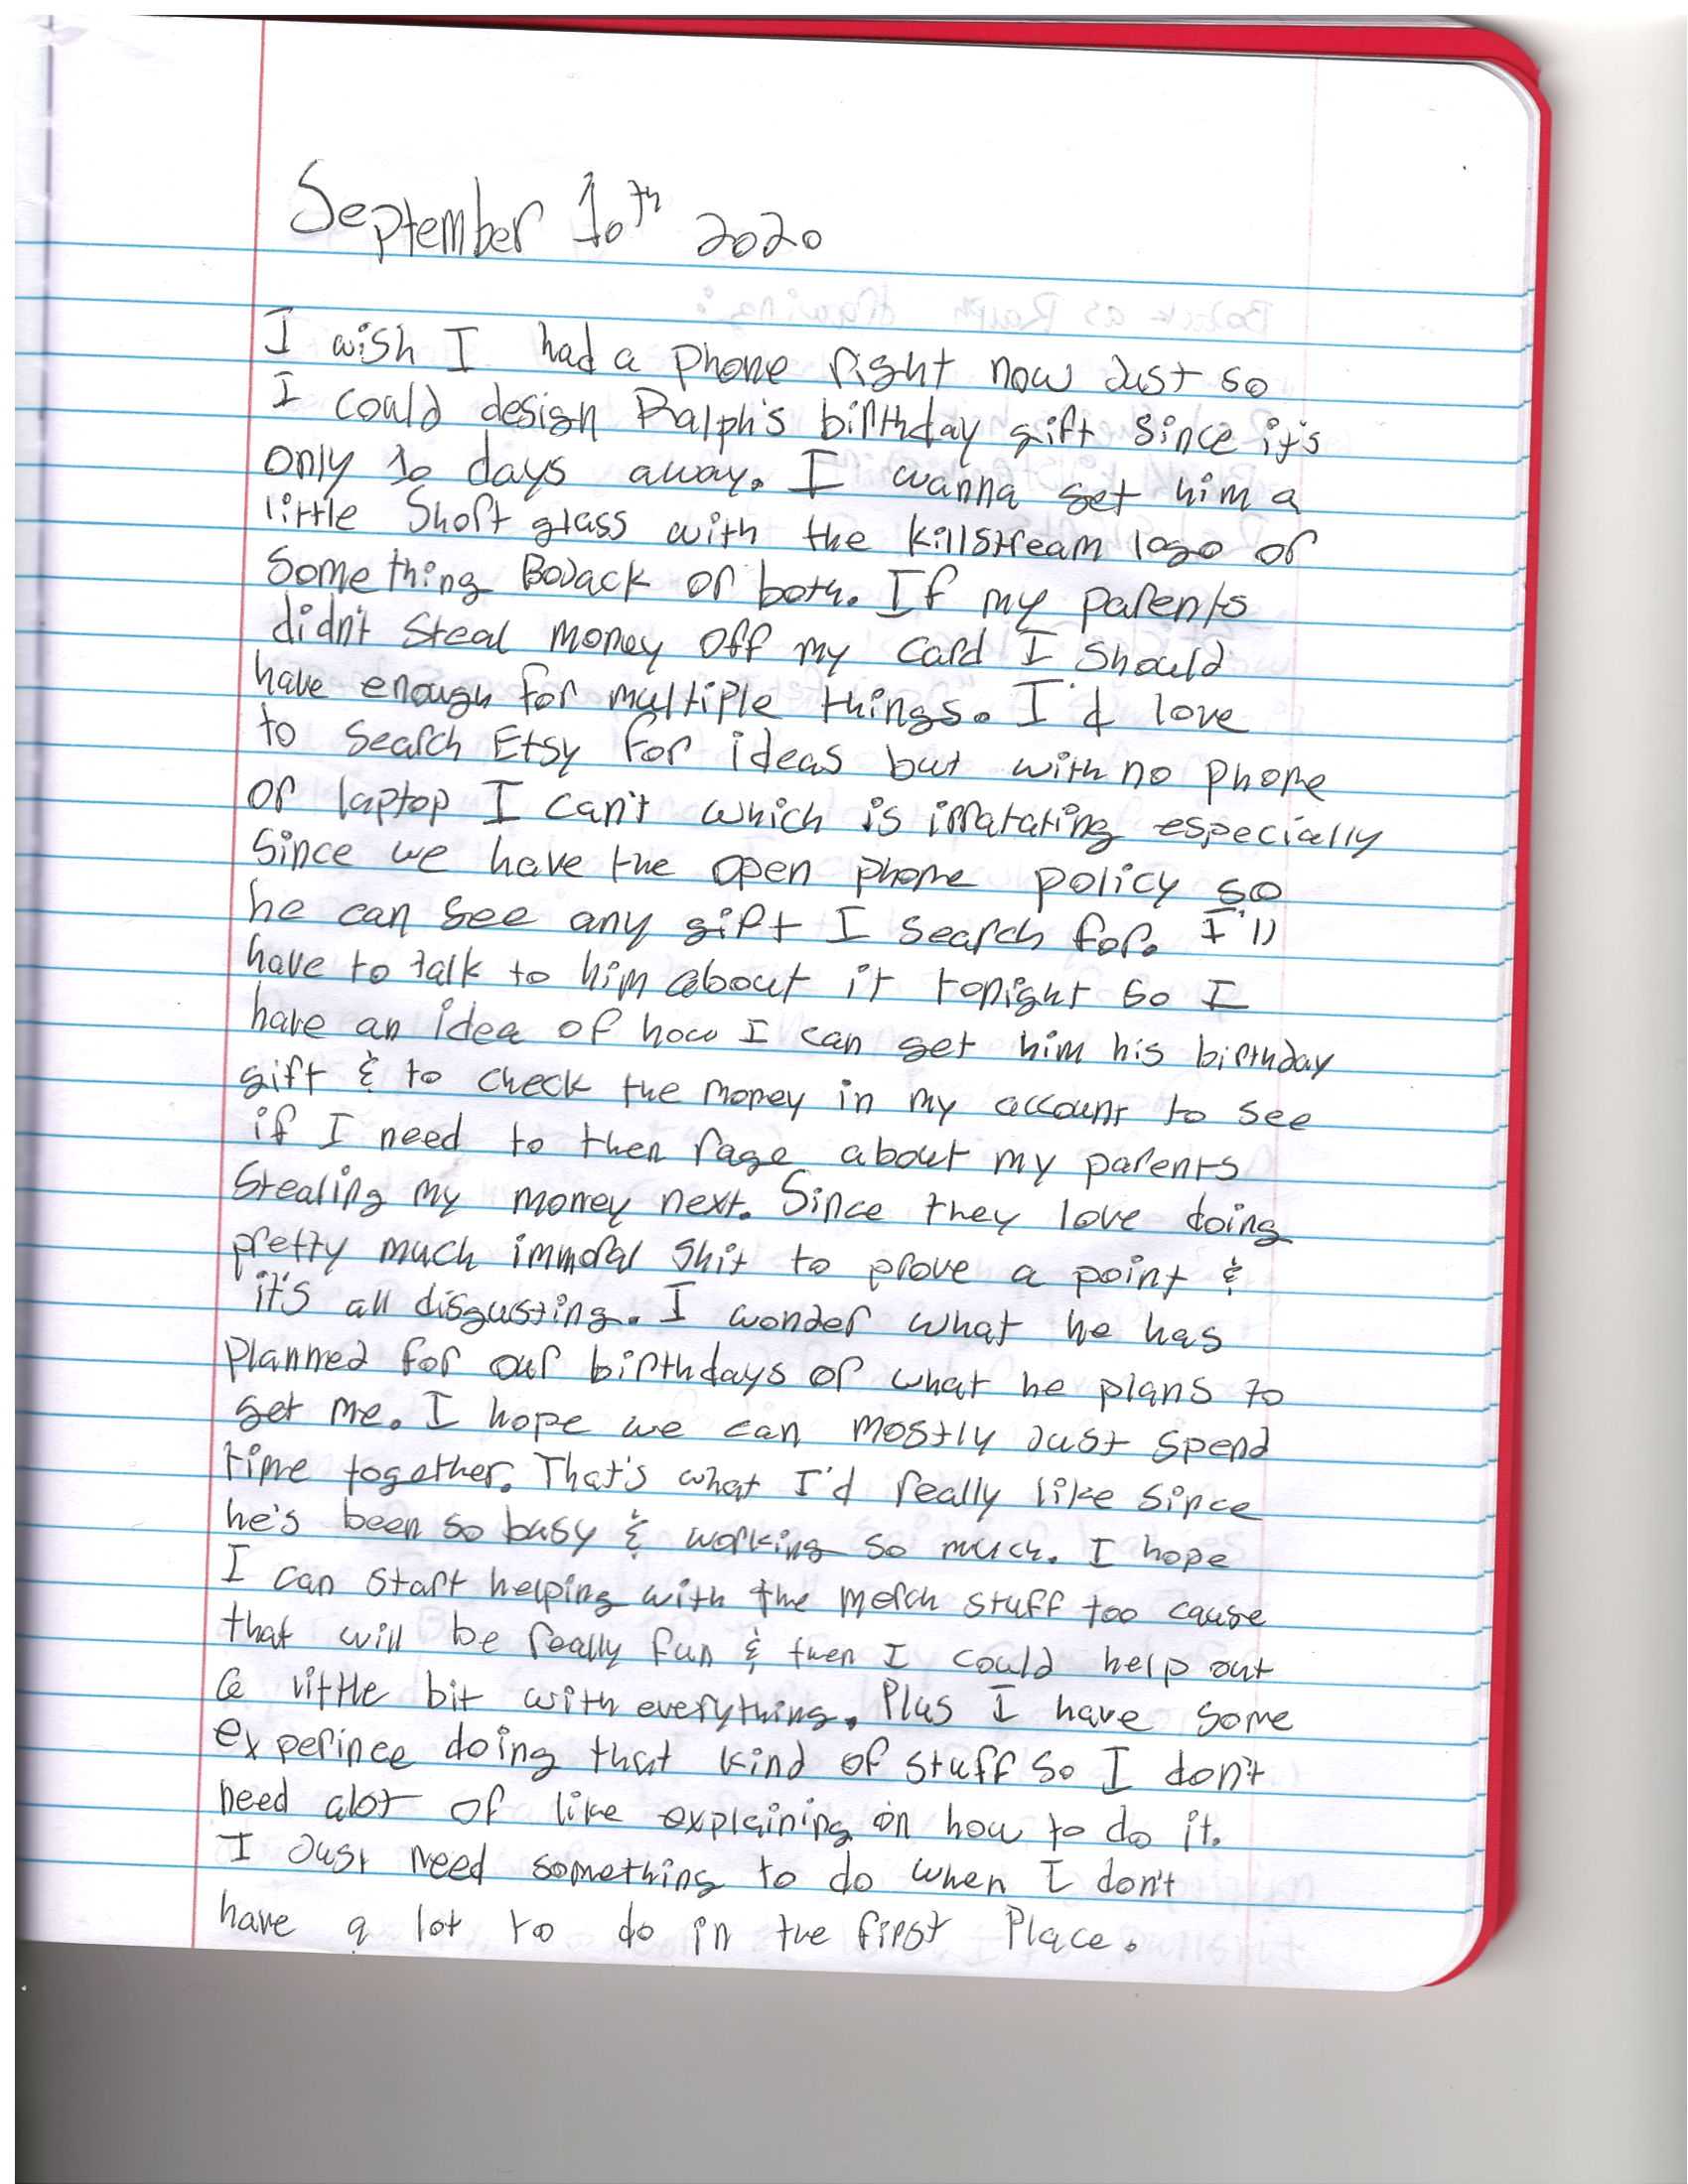 September 10th 2020
I wish I had a phone right now Just so
I could design Ralph's birthday gift since it's
only 10 days away. I wanna get him a
little Short glass with the killstream logo or
Something BoJack or both. If my parents
didn't steal money off my card I should
have enough for multiple things. I'd love
to search Etsy for ideas but with no phone
or laptop I can't which is irratating especially
since we have the open phone policy so
he can see any gift I search for. I'll
have to talk to him about it tonight so I
have an idea of how I can get him his birthday
gift & to check the money in my account to see
if I need to then rage about my parents
Stealing my money next. Since they love doing
pretty much immoral shit to prove a point &
it's all disgusting. I wonder what he has
planned for our birthdays or what he plans to
get me. I hope we can mostly Just spend
time together. That's what I'd really like since
he's been so busy & working so much. I hope
I can start helping with the merch stuff too cause
that will be really fun & then I could help out
a little bit with everything. Plus I have some
experince doing that kind of stuff so I don't
need alot of like explaining on how to do it.
I Just need something to do when I don't
have a lot to do in the first place.